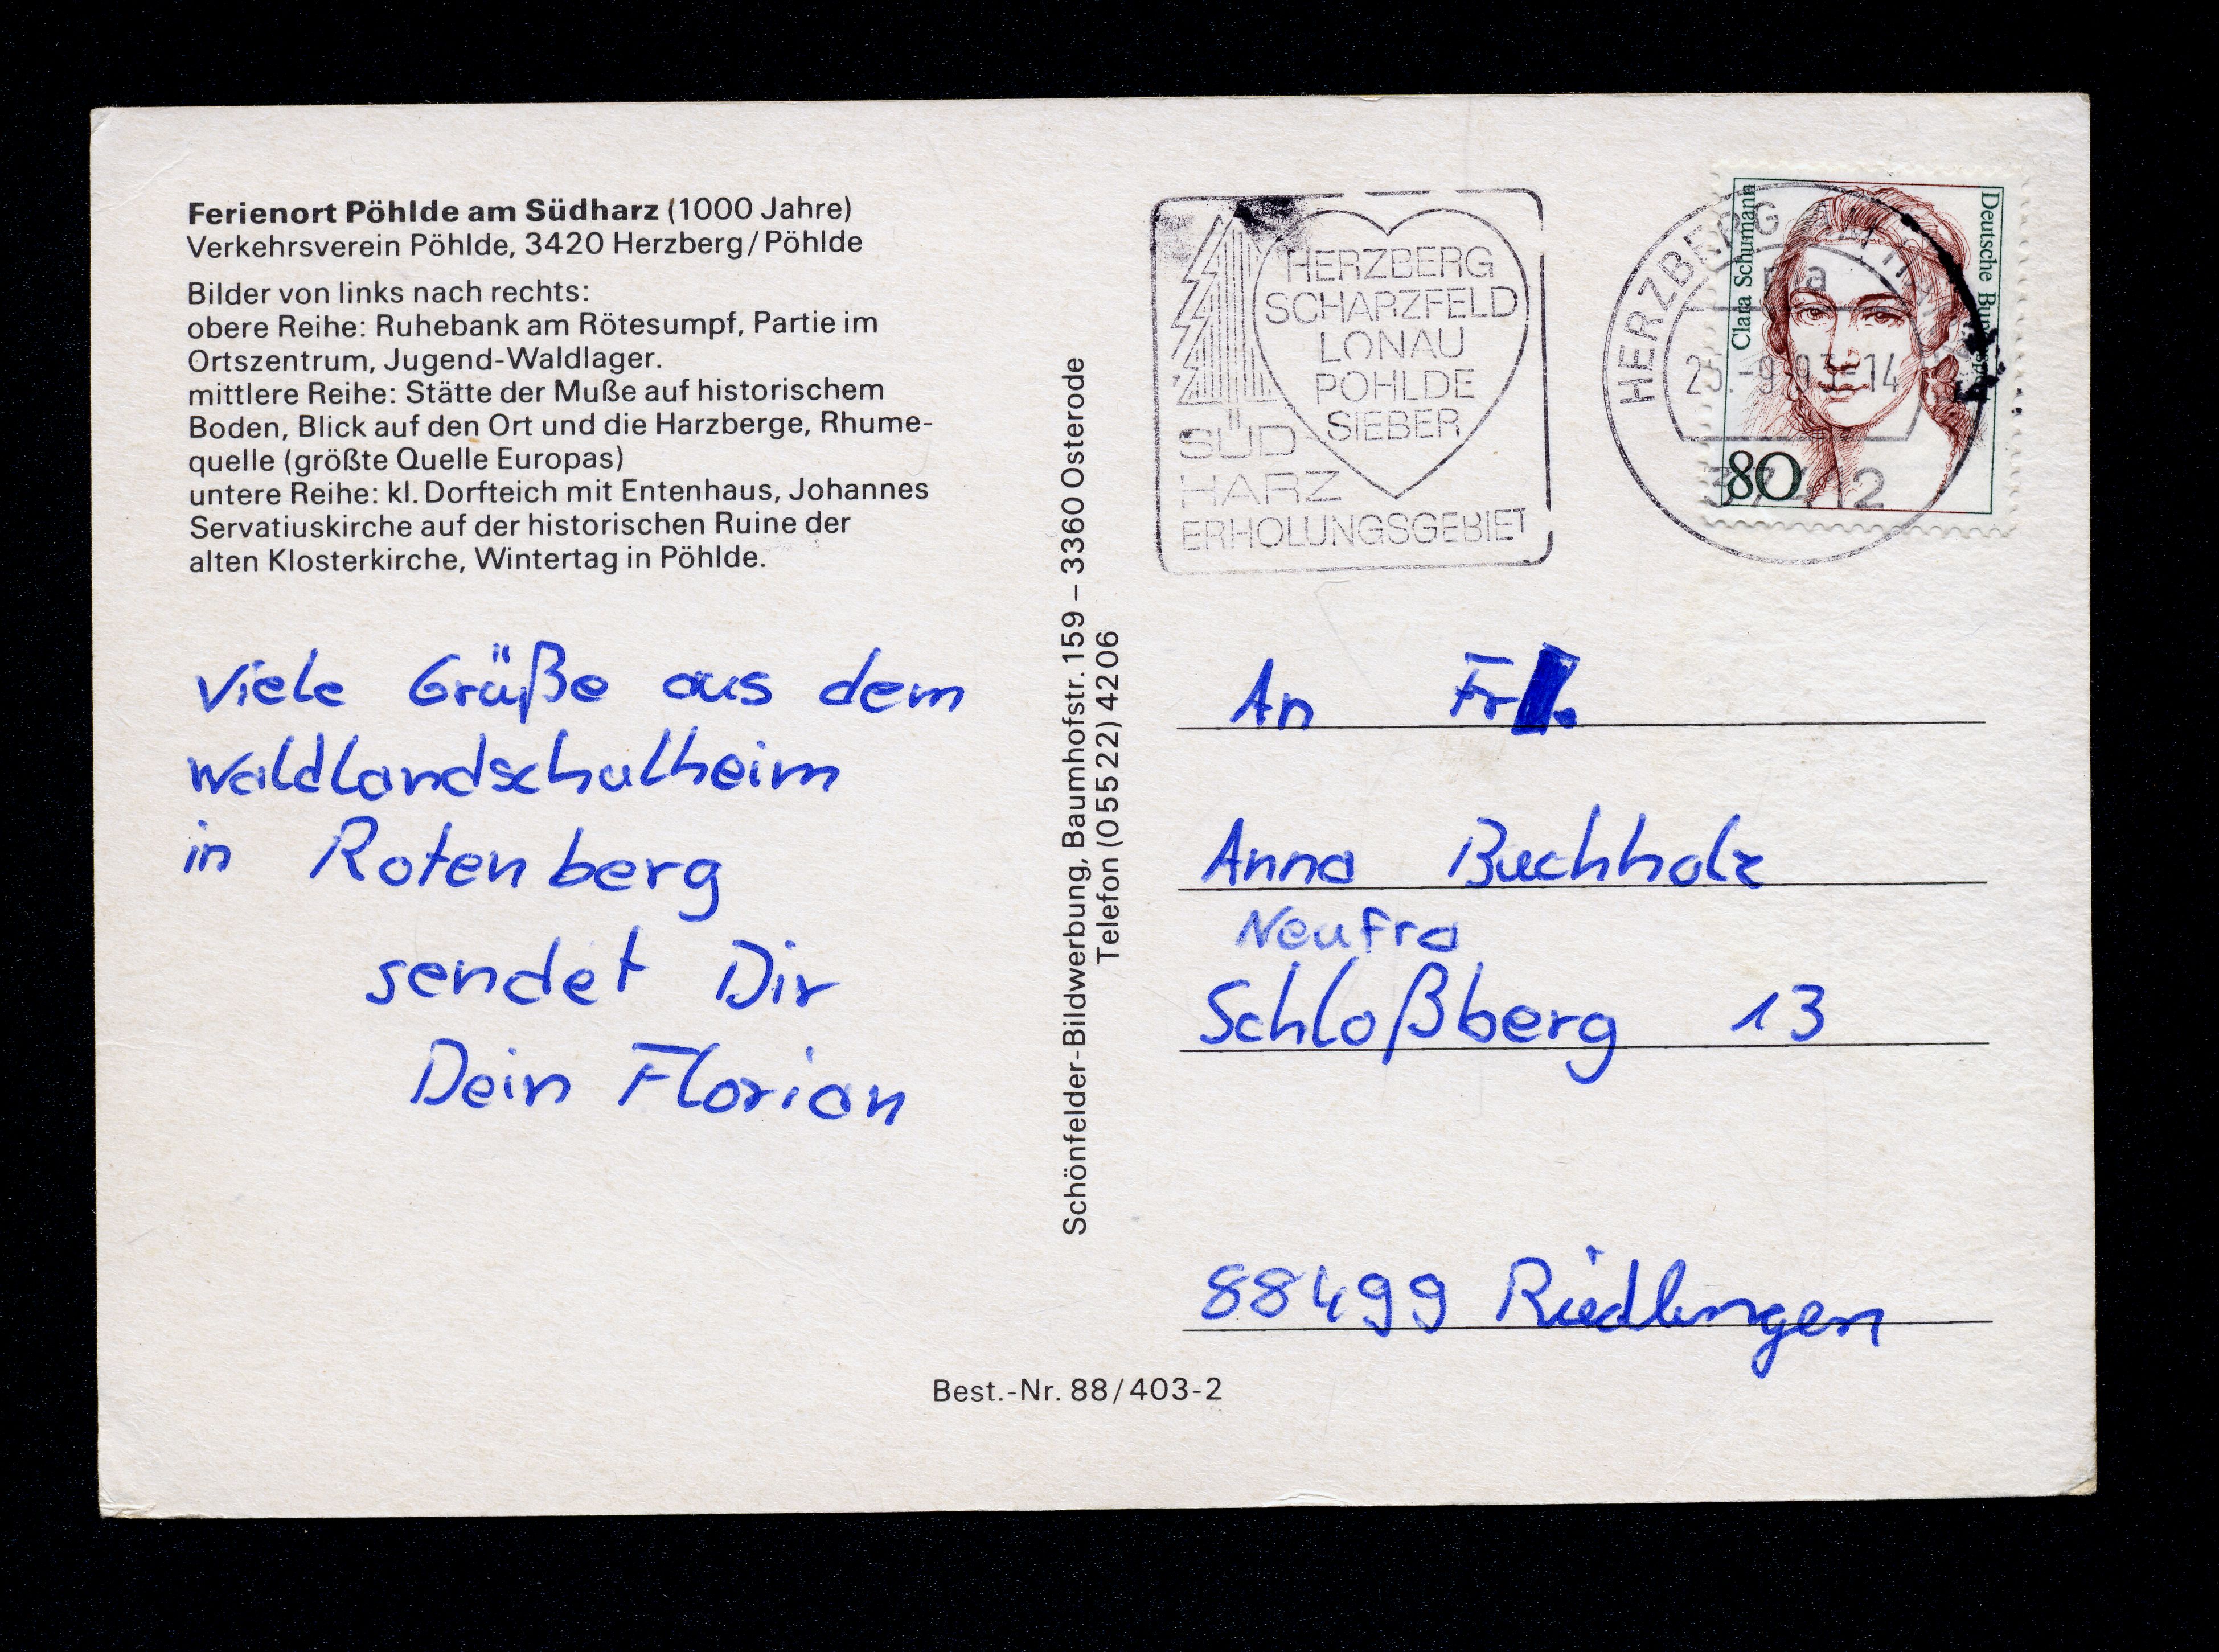 Ferienort Pöhlde am Südharz (1000 Jahre)
Verkehrsverein Pöhlde, 3420 Herzberg/Pöhlde
Bilder von links nach rechts:
obere Reihe: Ruhebank am Rötesumpf, Partie im
Ortszentrum, Jugend-Waldlager.
mittlere Reihe: Stätte der Muße auf historischem
Boden, Blick auf den Ort und die Harzberge, Rhume-
quelle (größte Quelle Europas)
untere Reihe: kl. Dorfteich mit Entenhaus, Johannes
Servatiuskirche auf der historischen Ruine der
alten Klosterkirche, Wintertag in Pöhlde.
Viele Grüße aus dem
Waldlandschulheim
in Rotenberg
sendet Dir
Dein Florian
Schönfelder-Bildwerbung, Baumhofstr. 159 – 3360 Osterode
Telefon (05522) 4206
HERZBERG
SCHARZFELD
LONAU
PÖHLDE
SIEBER
SÜD
HARZ
ERHOLUNGSGEBIET
HERZBERG AM HARZ
37412
Clara Schumann
Deutsche
80
An Fr.
Anna Buchholz
Neufra
Schloßberg 13
88499 Riedlingen
Best.-Nr. 88/403-2